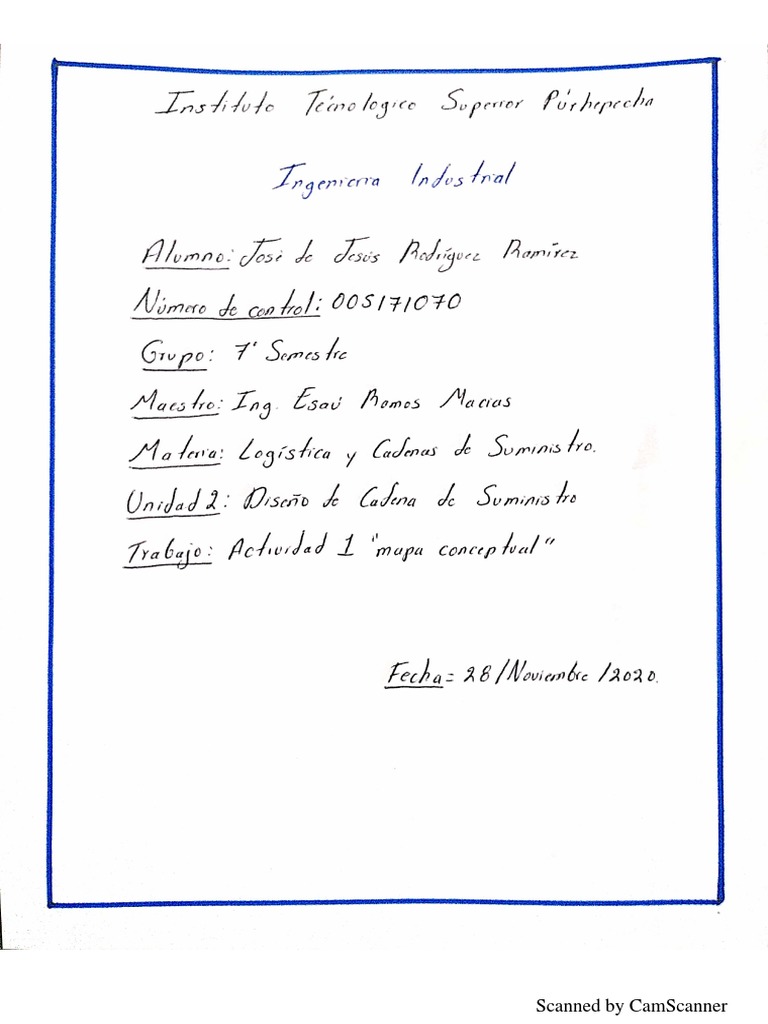 Instituto Técnologico Superior Púrhepecha
Ingenieria Industrial
Alumno: José de Jesús Rodríguez Ramírez
Número de control: 005171070
Grupo: 7° Semestre
Maestro: Ing. Esaú Ramos Macias
Materia: Logística y Cadenas de Suministro.
Unidad 2: Diseño de Cadena de Suministro
Trabajo: Actividad 1 "mapa conceptual"
Fecha= 28/Noviembre/2020.
Scanned by CamScanner